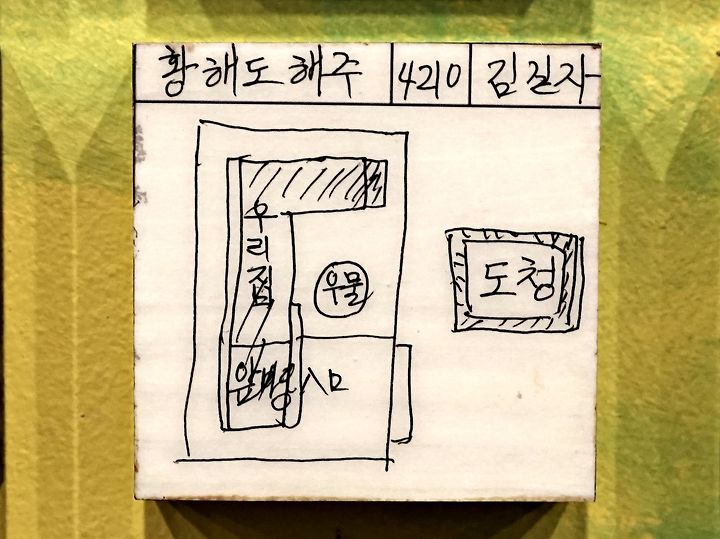 황해도해주 4210 김길자
우리집
우물
도청